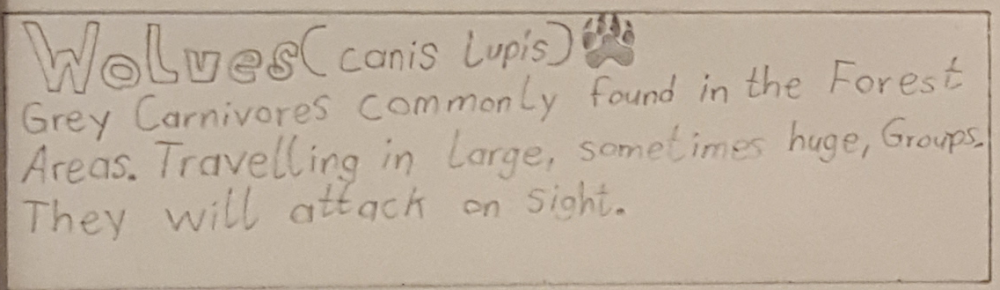 Wolves (canis Lupis)
Grey Carnivores commonly found in the Forest
Areas. Travelling in Large, sometimes huge, Groups.
They will attack on sight.